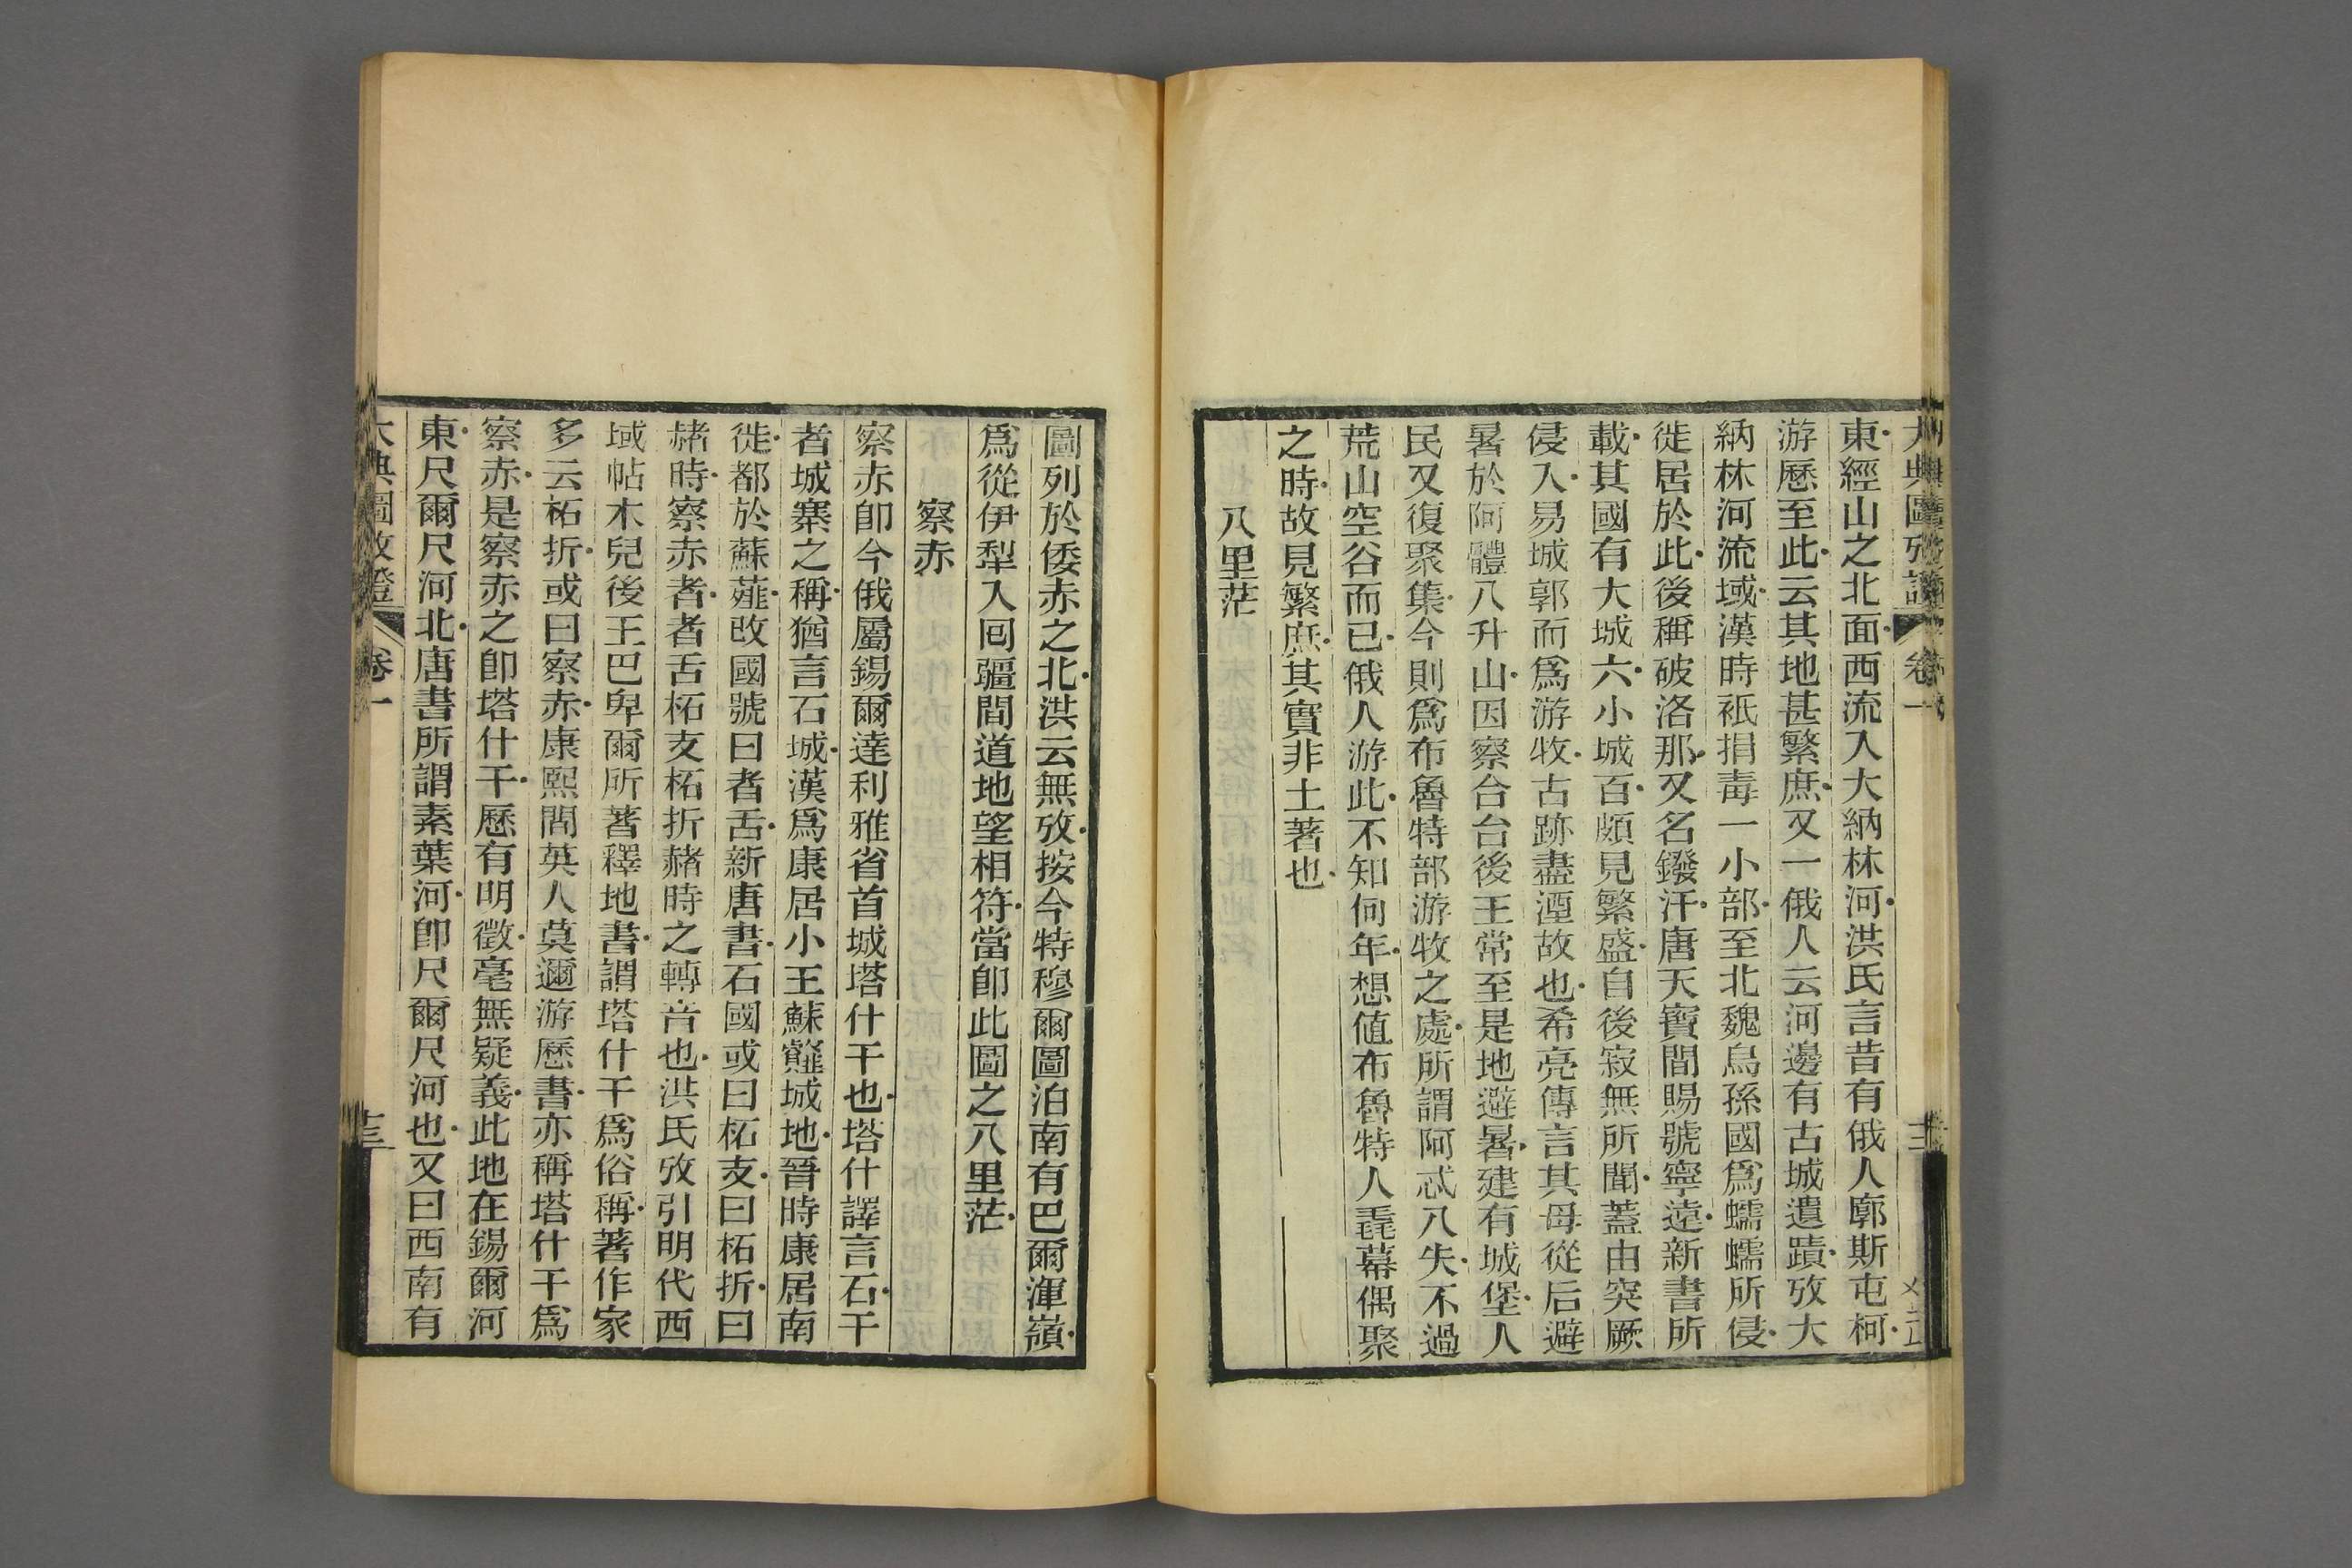 大典圖攷證 卷一 十二
東經山之北面西流入大納林河洪氏言昔有俄人廓斯屯柯
游歷至此云其地甚繁庶又一俄人云河邊有古城遺蹟攷大
納林河流域漢時祇捐毒一小部至北魏烏孫國爲蠕蠕所侵
徙居於此後稱破洛那又名鏺汗唐天寶間賜號寧遠新書所
載其國有大城六小城百頗見繁盛自後寂無所聞蓋由突厥
侵入易城郭而爲游牧古跡盡湮故也希亮傳言其母從后避
暑於阿體八升山因察合台後王常至是地避暑建有城堡人
民又復聚集今則爲布魯特部游牧之處所謂阿忒八失不過
荒山空谷而已俄人游此不知何年想值布魯特人毳幕偶聚
之時故見繁庶其實非土著也
八里茫
圖列於倭赤之北洪云無攷按今特穆爾圖泊南有巴爾渾嶺
爲從伊犁入回疆間道地望相符當卽此圖之八里茫
察赤
察赤卽今俄屬錫爾達利雅省首城塔什干也塔什譯言石干
者城寨之稱猶言石城漢爲康居小王蘇䪥城地晉時康居南
徙都於蘇薤改國號曰者舌新唐書石國或曰柘支曰柘折曰
赭時察赤者者舌柘支柘折赭時之轉音也洪氏攷引明代西
域帖木兒後王巴卑爾所著釋地書謂塔什干爲俗稱著作家
多云柘折或曰察赤康熙間英人莫邇游歷書亦稱塔什干爲
察赤是察赤之卽塔什干歷有明徵毫無疑義此地在錫爾河
東尺爾尺河北唐書所謂素葉河卽尺爾尺河也又曰西南有
大典圖攷證 卷一 十三